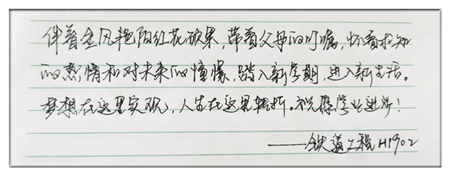 伴着金风艳阳红花硕果，带着父母的叮嘱，怀着求知
的热情和对未来的憧憬，踏入新学期，进入新生活。
梦想在这里实现，人生在这里转折。祝愿学业进步！
——铁道工程H1902